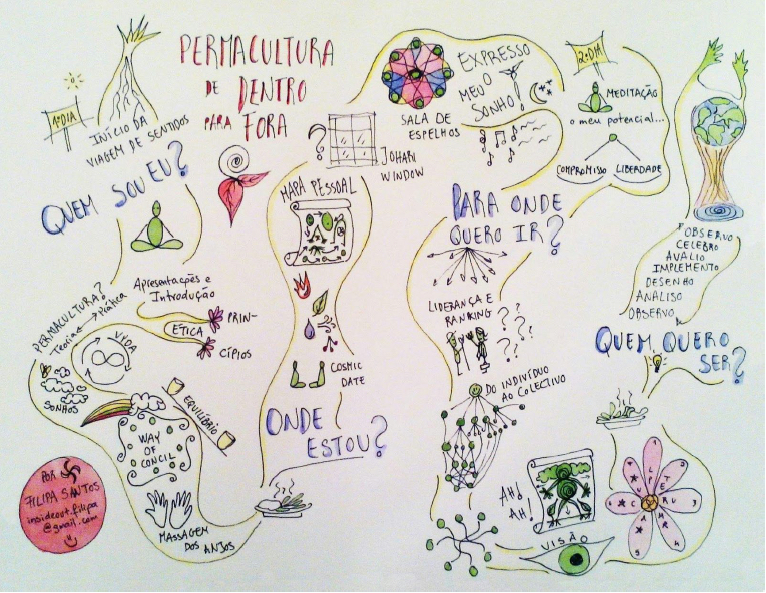 PERMACULTURA
DE DENTRO
PARA FORA
1º DIA
INÍCIO DA
VIAGEM DE SENTIDOS
QUEM SOU EU?
Apresentações e
Introdução
ÉTICA
PRIN-
CÍPIOS
PERMACULTURA?
Teoria → Prática
VIDA
SONHOS
EQUILÍBRIO
WAY
OF
CONCIL
MASSAGEM
DOS ANJOS
POR
FILIPA SANTOS
insideout.filipa
@gmail.com
ONDE
ESTOU?
COSMIC
DATE
MAPA PESSOAL
?
JOHARI
WINDOW
SALA DE
ESPELHOS
EXPRESSO
O MEU
SONHO!
2º DIA
MEDITAÇÃO
o meu potencial...
COMPROMISSO LIBERDADE
PARA ONDE
QUERO IR?
LIDERANÇA E
RANKING
? ? ? ? ?
DO INDIVÍDUO
AO COLECTIVO
AH!
AH!
VISÃO
OBSERVO
CELEBRO
AVALIO
IMPLEMENTO
DESENHO
ANALISO
OBSERVO
QUEM QUERO
SER?